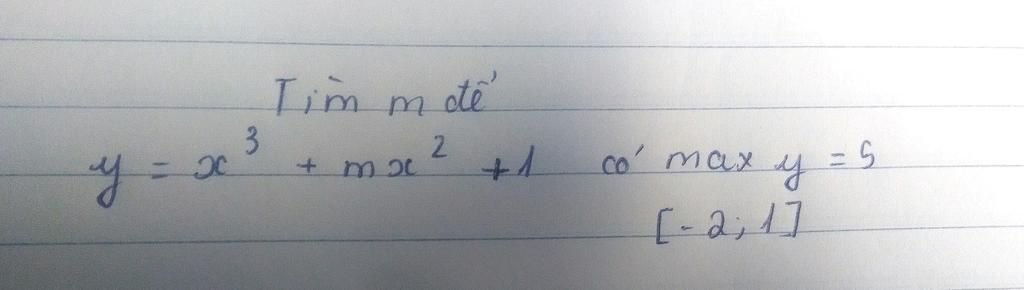 Tìm m để
y = x³ + mx² + 1 có max y = 5
[-2; 1]